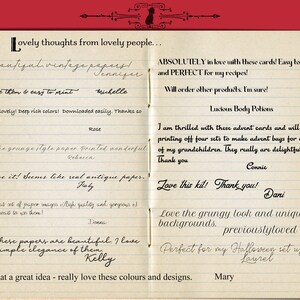 Lovely thoughts from lovely people...
beautiful vintage papers!
Jennifer
& easy to print Michelle
lovely! Deep rich colors! Downloaded easily. Thanks so
Rose
grunge style paper. Printed wonderful
Rebecca
it! Seems like real antique paper.
July
set of paper unique. High quality and
to use them!
these papers are beautiful. I love
simple elegance of them.
Kelly
at a great idea - really love these colours and designs. Mary
ABSOLUTELY in love with these cards! Easy to
and PERFECT for my recipes!
Will order other products, I'm sure!
Lucious Body Potions
I am thrilled with these advent cards and will
printing off four sets to make advent bags for
of my grandchildren. They really are delightful
Thank you
Connie
Love this kit! Thank you!
Dani
Love the grungy look and unique
backgrounds.
previouslyloved
Perfect for my Halloween set up
Laurel